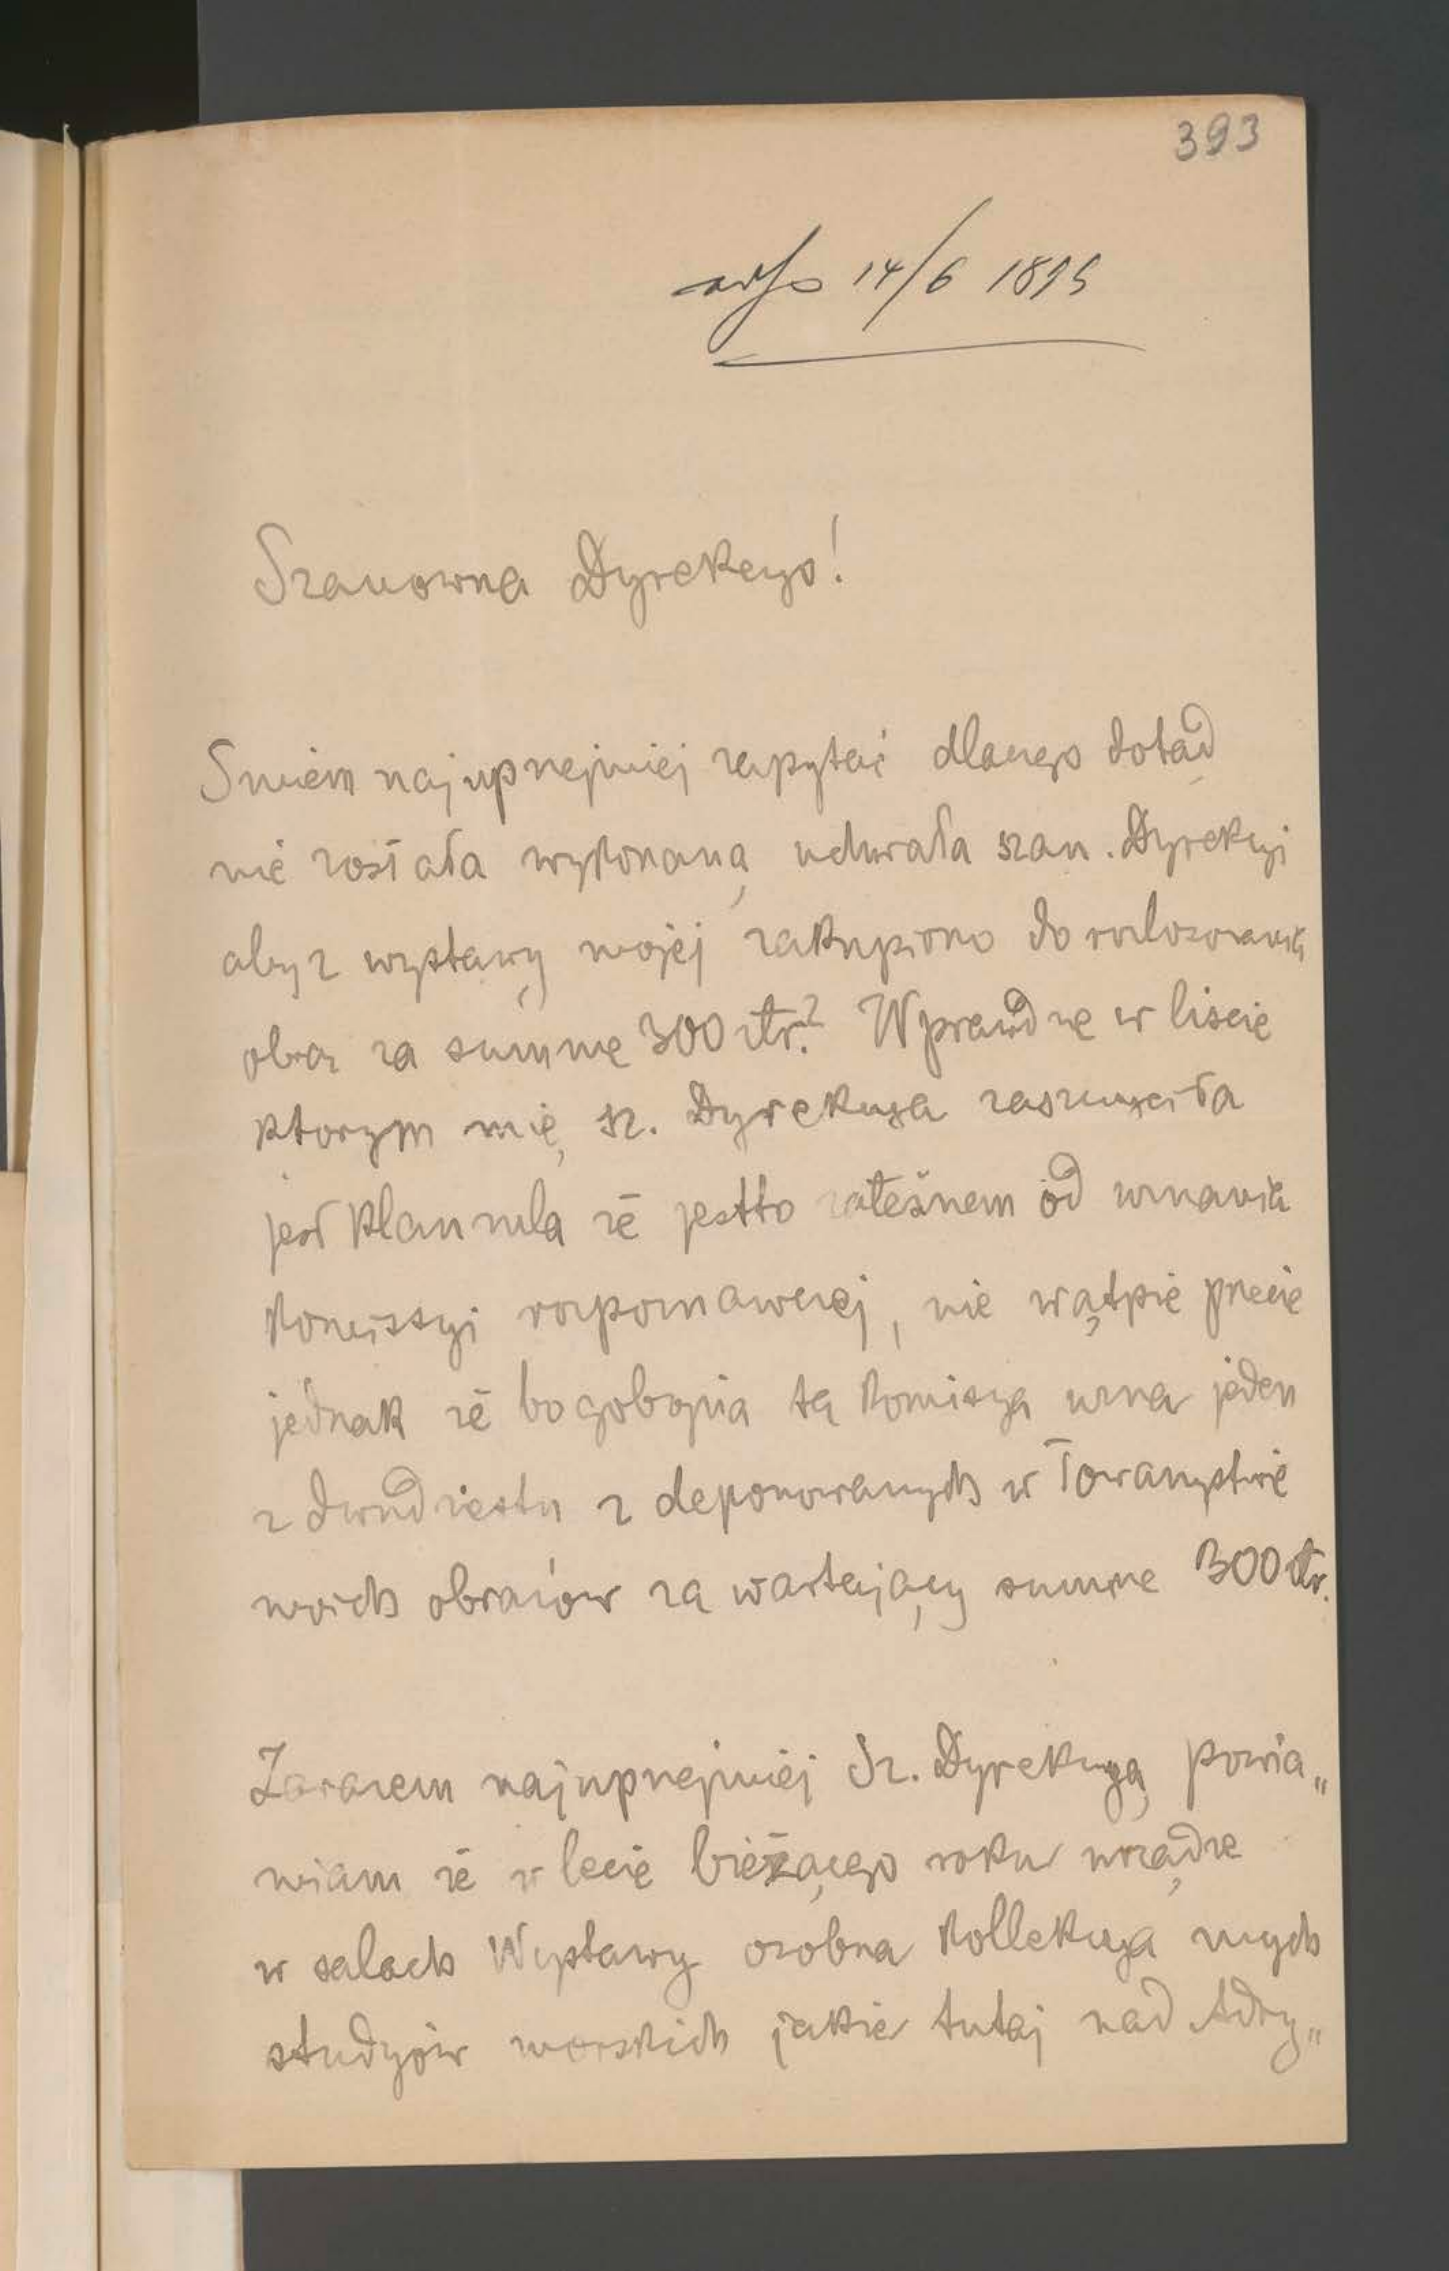 393
14/6 1895
Szanowna Dyrekcyo!
Smiem najuprzejmiej zapytać dlaczego dotąd
nie została wykonaną uchwała szan. Dyrekcyi
aby z wystawy mojej zakupiono do rozlosowania
obraz za summę 300 złr.? Wprawdzie w liscie
ktorym mię sz. Dyrekcya zaszczyciła
jest klauzula że jestto zależnem od uznania
Komissyi rozpoznawczej, nie wątpie przecie
jednak że bogobojna ta Komisya uzna jeden
z dwudziestu z deponowanych w Towarzystwie
moich obrazów za wartający summe 300 złr.
Zarazem najuprzejmiej Sz. Dyrekcyą powia„
miam że w lecie bieżącego roku urządze
w salach Wystawy osobna Kollekcya mych
studyów morskich jakie tutaj nad Adry„